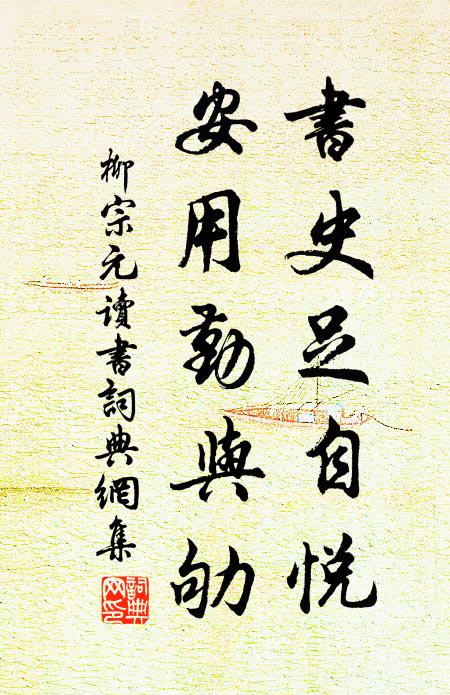 書史足自悅
安用勤與劬
柳宗元讀書詞典網集
詞典網印